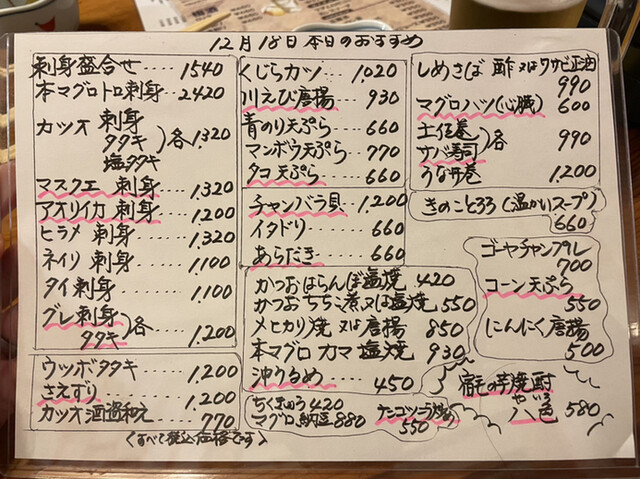 12月18日 本日のおすすめ
刺身盛合せ ‥‥ 1540
本マグロトロ刺身‥ 2420
カツオ 刺身
タタキ 各 1,320
塩タタキ
マスクエ 刺身 ‥‥ 1,320
アオリイカ 刺身‥‥ 1,200
ヒラメ 刺身 ‥‥ 1,320
ネイリ 刺身 ‥‥ 1,100
タイ 刺身 ‥‥ 1,100
グレ 刺身
タタキ 各‥‥ 1,200
ウツボタタキ ‥‥ 1,200
さえずり ‥‥ 1,200
カツオ酒盗和え ‥‥ 770
くすべて税込価格です>
くじらカツ ‥‥ 1,020
川えび唐揚 ‥‥ 930
青のり天ぷら ‥‥ 660
マンボウ天ぷら ‥‥ 770
タコ天ぷら ‥‥ 660
チャンバラ貝 ‥‥ 1,200
イタドリ ‥‥ 660
あらだき ‥‥ 660
かつおはらんぼ塩焼 420
かつおちちこ煮又は塩焼 550
メヒカリ焼 又は唐揚 850
本マグロ カマ 塩焼 930
沖うるめ ‥‥ 450
ちくきゅう 420
マグロ納豆 880
ナンコツこつ
550
しめさば 酢 又はワサビ正油
990
マグロハツ(心臓) 600
土佐巻
サバ寿司 各 990
うな丼巻 1,200
きのことろろ(温かいスープ)
660
ゴーヤチャンプル
700
コーン天ぷら
550
にんにく唐揚
500
宿毛の芋焼酎
やいろ
八色 580